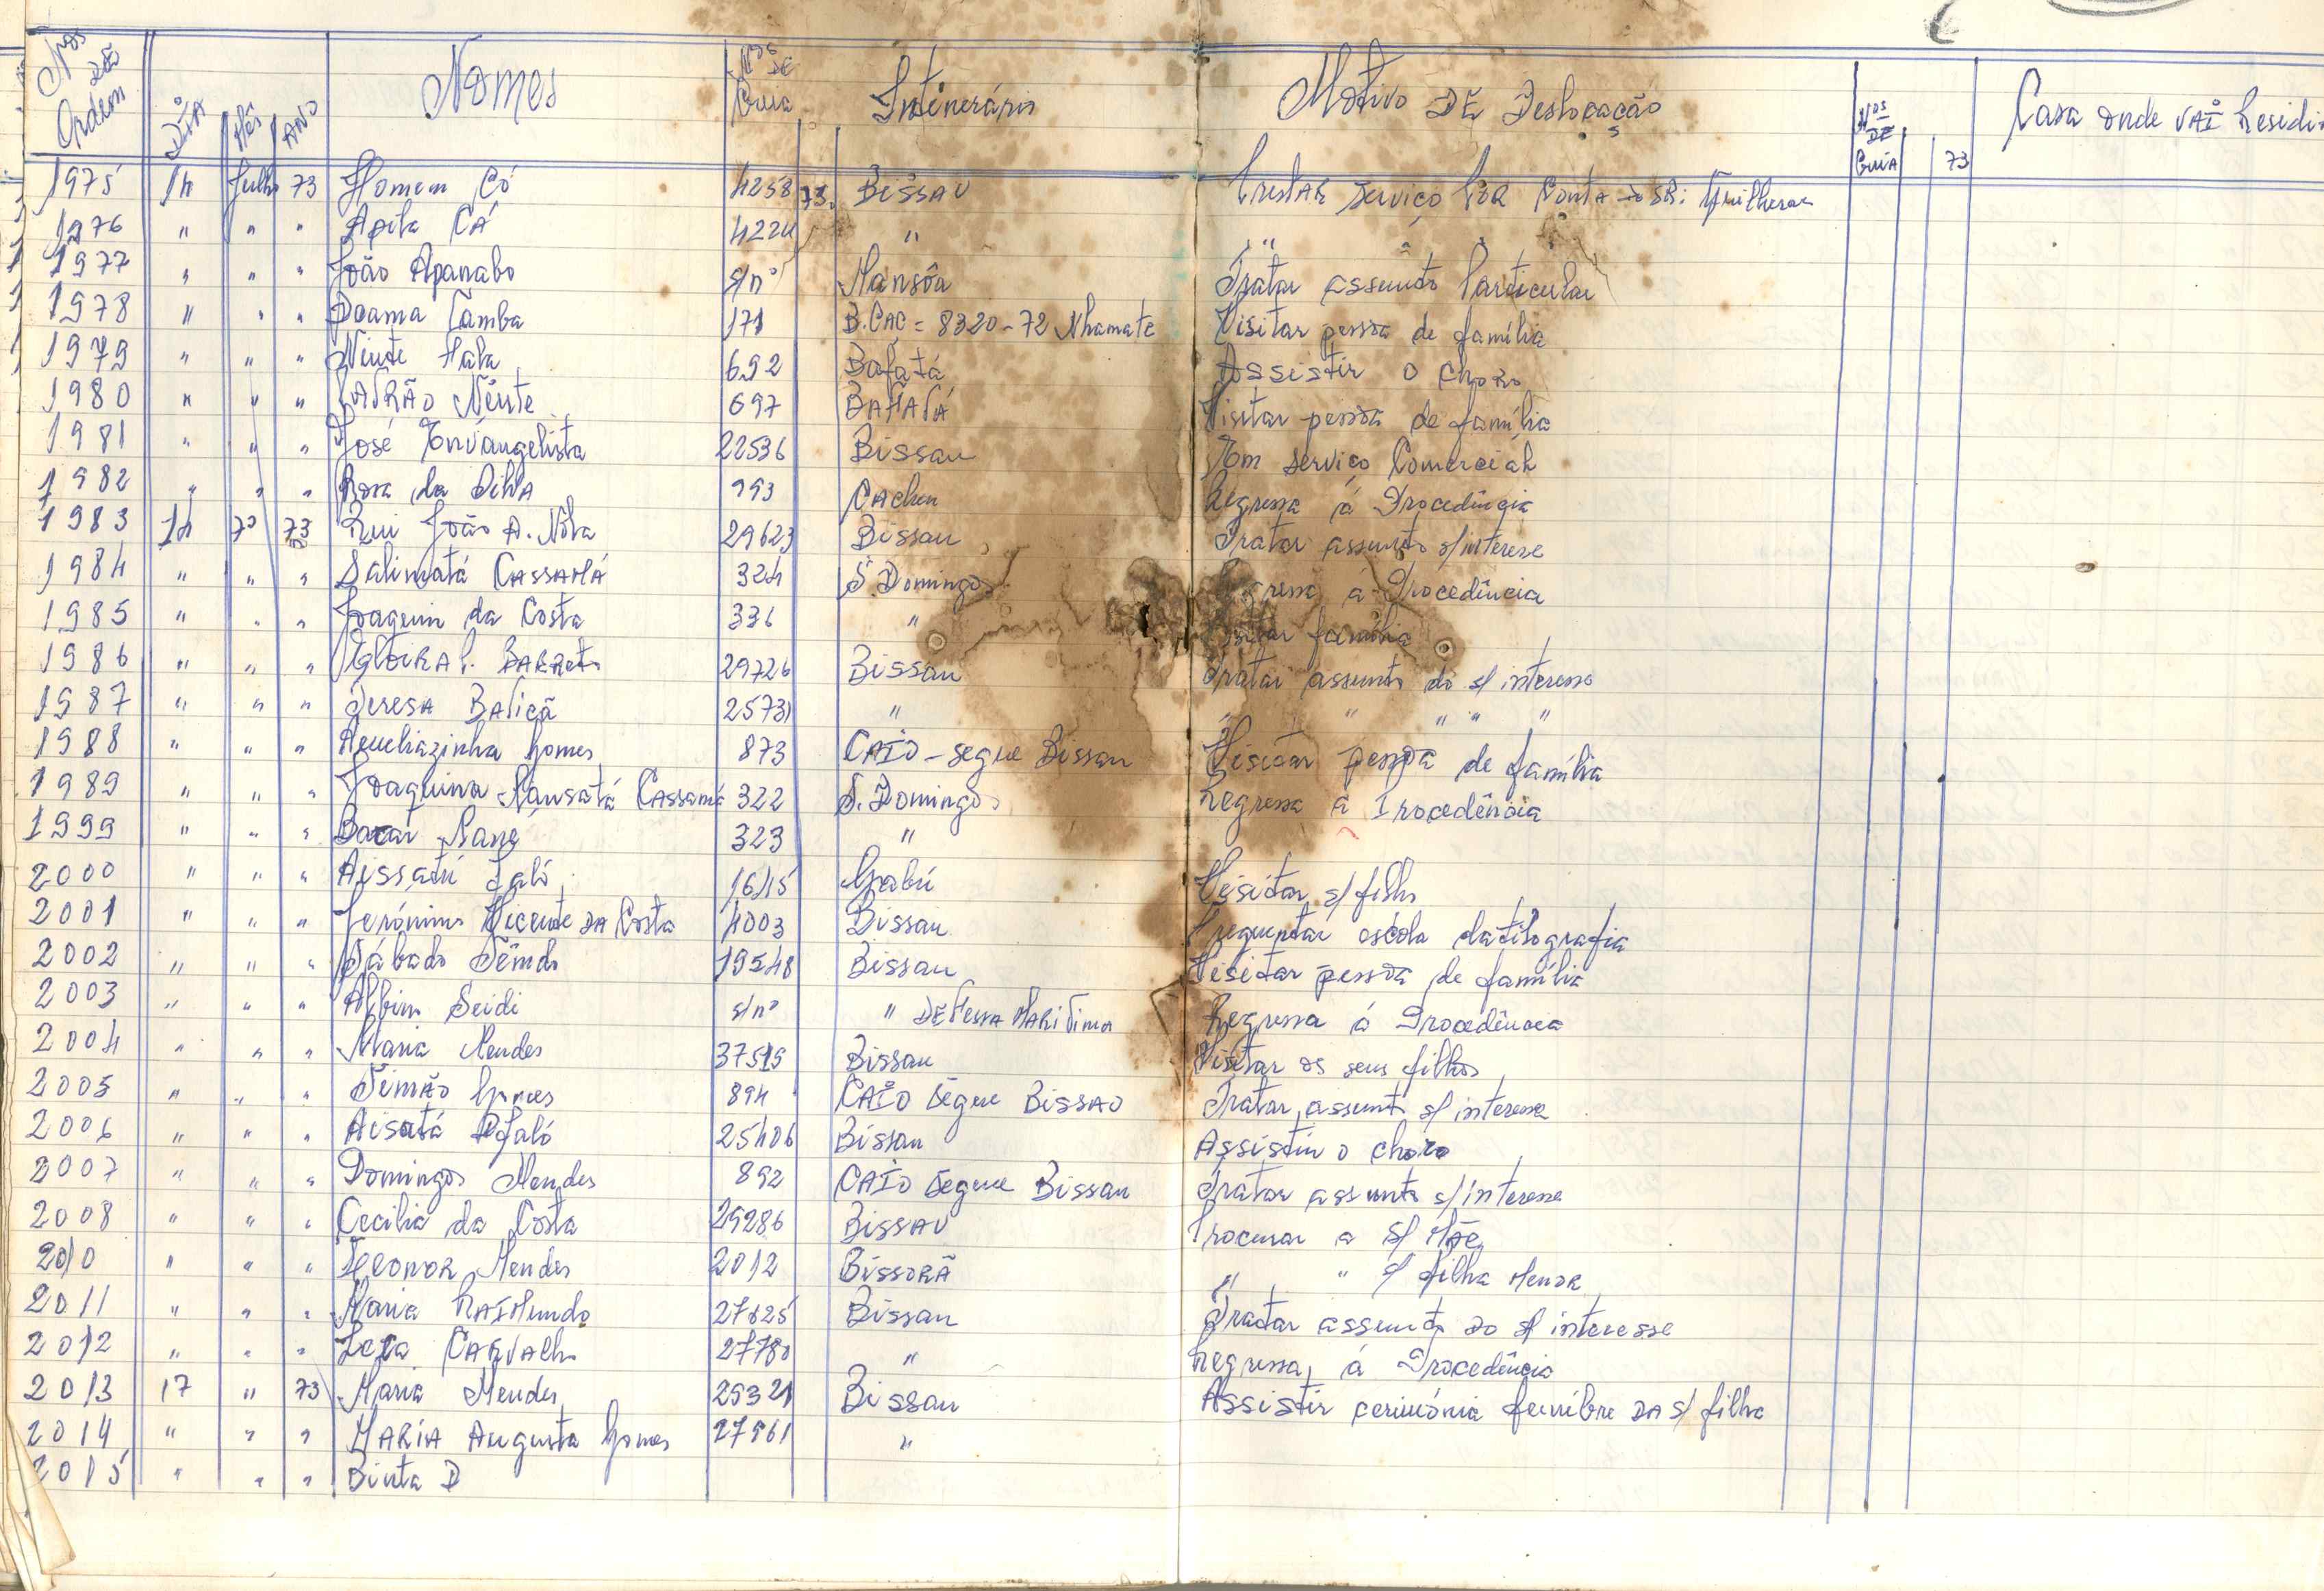 Nos DÃO Ordem DIA Mês ANO Nomes Nos DE Guia Intinerário Motivo DE Deslocação Nos DE GUIA 73 Casa onde VAI Residir
1975 14 Julho 73 Homem Có 4258 73. BissAU Prestar Serviço POR Conta do SR:
1976 " " " Apita CÁ 4224 " " "
1977 " " " João Apanabo s/nº Mansôa Tratar assunto Particular
1978 " " " Doama Camba 171 B.CAÇ = 8320-72 Nhamate Visitar pessoa de família
1979 " " " Ninte 692 Bafatá Assistir o choro
1980 " " " Ninte 697 BAFATÁ Visitar pessoa de família
1981 " " " José Envangelista 22536 Bissau Em serviço Comercial
1982 " " " Rosa da SilvA 993 CAcheu Regressa á Procedência
1983 14 7º 73 Rui João A. 29623 Bissau Tratar assunto s/interesse
1984 " " " Salimatá CASSAMÁ 324 S. Domingos Regressa á Procedência
1985 " " " Joaquim da Costa 336 " Visitar família
1986 " " " BARReto 29726 Bissau Tratar assunto do s/ interesse
1987 " " " TeresA Baticã 25731 " " " " " "
1988 " " " Ameliazinha Gomes 873 CAIO - segue Bissau Visitar pessoa de família
1989 " " " Joaquina Mansatá Cassamá 322 S. Domingos Regressa á Procedência
1999 " " " Bacar Mané 323 "
2000 " " " Aissatú Jaló 1645 Gabú Visitar s/ filho
2001 " " " Jerónimo Vicente DA Costa 4003 Bissau Frequentar escola datilografia
2002 " " " Sábado 19548 Bissau Visitar pessoa de família
2003 " " " Albino Seidi s/nº " DEFessA MARiTima Regressa á Procedência
2004 " " " Maria Mendes 37519 Bissau Visitar os seus filhos
2005 " " " Simão Gomes 894 CAIO segue BissAO Tratar assunto s/ interesse
2006 " " " Aisatá Djaló 25406 Bissau Assistir o choro
2007 " " " Domingos Mendes 892 CAIO segue Bissau Tratar assunto s/interesse
2008 " " " Cecilia da Costa 29286 BissAU Procurar a S/ MÃE
2010 " " " LEONOR Mendes 2012 BissoRÃ " " s/ filha MenoR
2011 " " " Maria RAIMundo 27625 Bissau Tratar assunto do s/ interesse
2012 " " " Zeca CARVAlho 27780 " Regressa á Procedência
2013 17 " 73 Maria Mendes 29321 Bissau Assistir cerimónia funibre DA s/ filha
2014 " " " MARIA Augusta Gomes 27961 "
2015 " " " Binta D